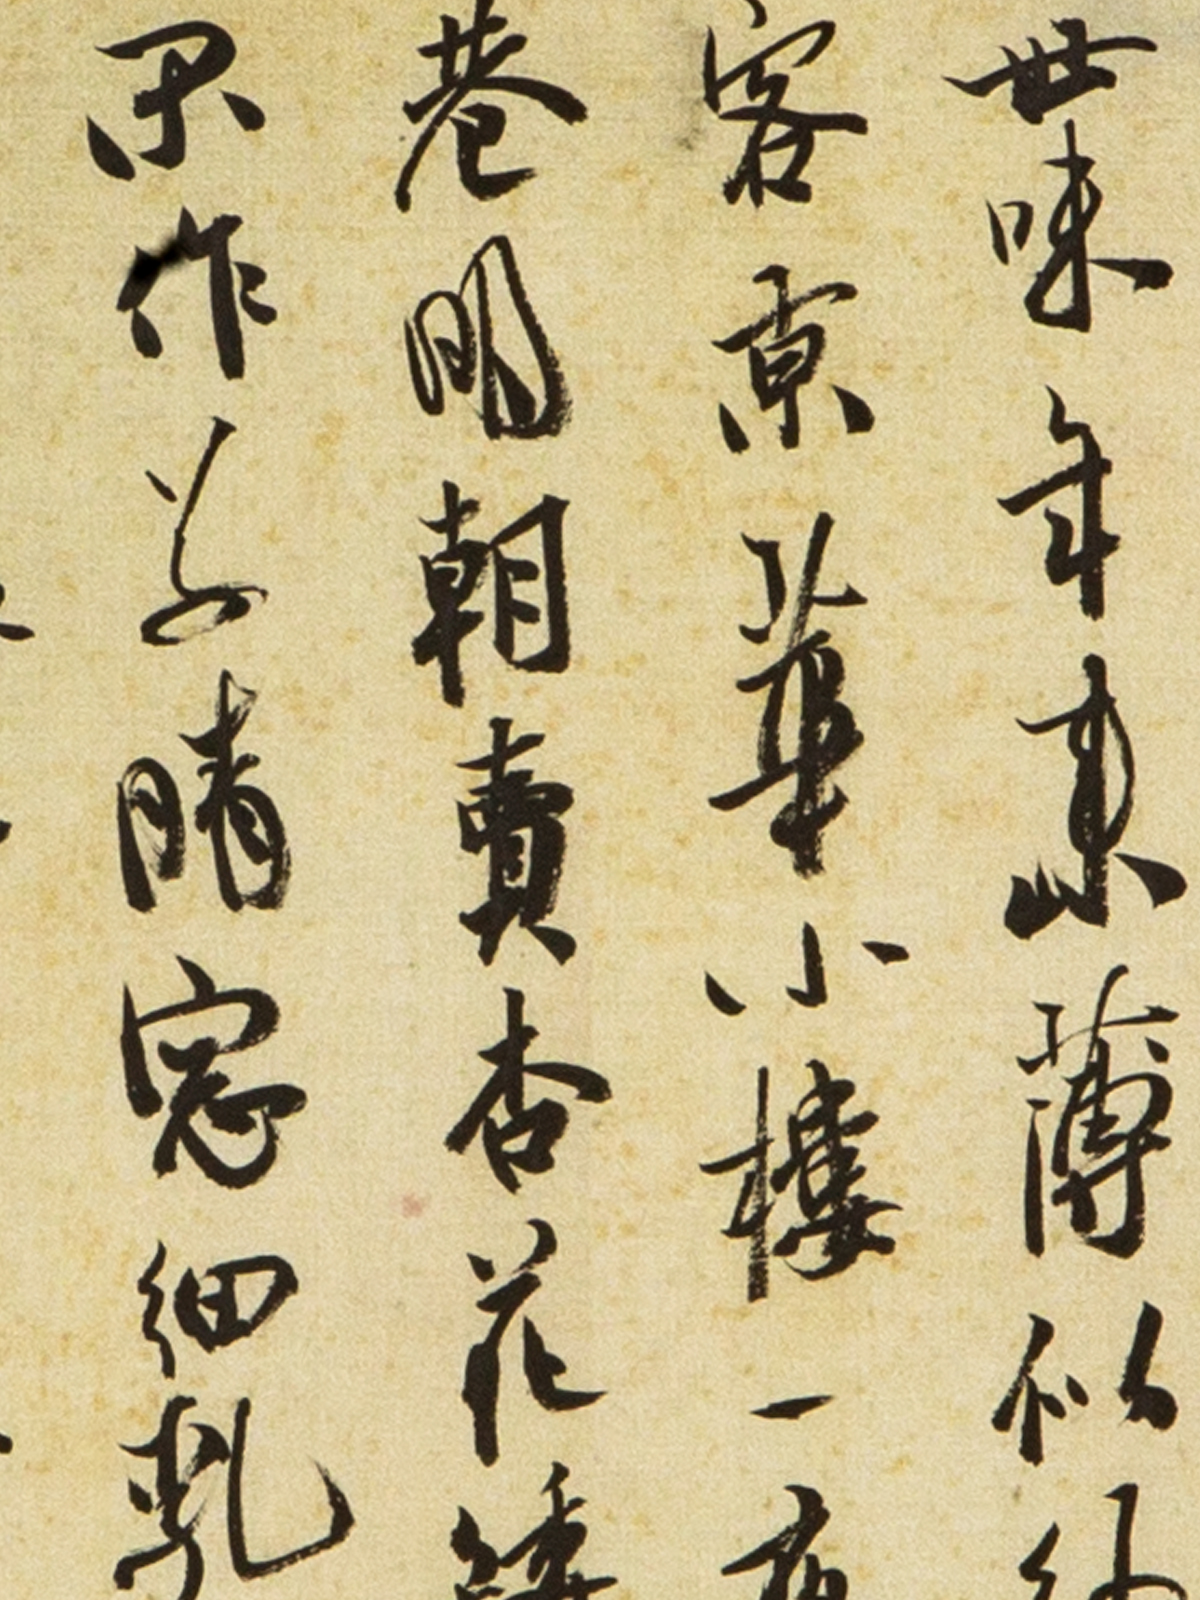 世味年來薄似紗
客京華小樓一夜
巷明朝賣杏花矮
閑作草晴窗細乳